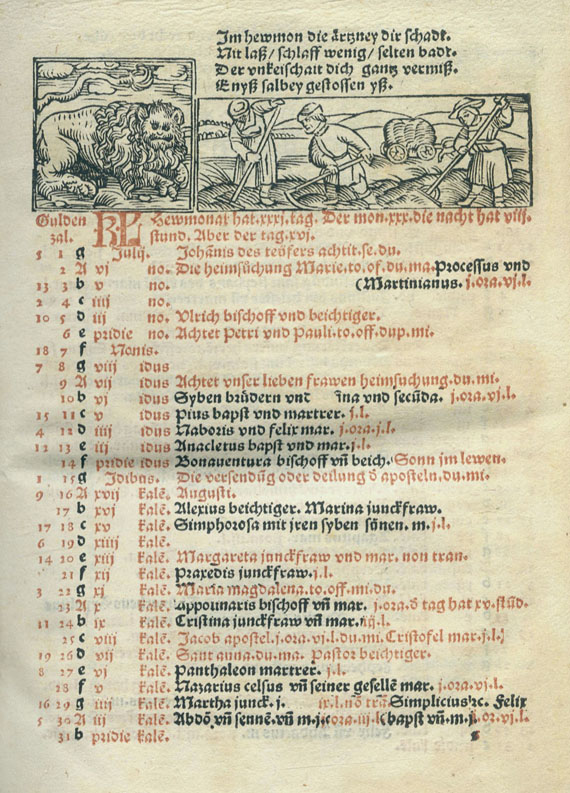 Im hewmon die ärtzney dir schadt.
Nit laß/ schlaff wenig/ selten badt.
Der vnkeischait dich gantz vermiß.
Enyß salbey gestossen yß.
Gulden zal. KL Hewmonat hat.xxxj.tag. Der mon.xxx.die nacht hat viij.
stund. Aber der tag.xvj.
5 1 g Julij. Johānis des teüfers achtit.se.du.
2 A vj no. Die heimsüchung Marie.to.of.du.ma.Processus vnd
13 3 b v no. (Martinianus. j.ora.vj.l.
2 4 c iiij no.
10 5 d iij no. Vlrich bischoff vnd beichtiger.
6 e pridie no. Achtet Petri vnd Pauli.to.off.dup.mi.
18 7 f Nonis.
7 8 g viij idus
9 A vij idus Achtet vnser lieben frawen heimsuchung.du.mi.
10 b vj idus Syben brüdern vnd īna vnd secūda. j.ora.vj.l.
15 11 c v idus Pius bapst vnd martrer. j.l.
4 12 d iiij idus Naboris vnd felix mar. j.ora.j.l.
12 13 e iij idus Anacletus bapst vnd mar.j.l.
14 f pridie idus Bonauentura bischoff vn̄ beich. Sonn im lewen.
1 15 g Idibus. Die versendūg oder deilung ð aposteln.du.mi.
9 16 A xvij kalē. Augusti.
17 b xvj kalē. Alexius beichtiger. Marina junckfraw.
17 18 c xv kalē. Simphorosa mit jren syben sönen. m.j.l.
6 19 d xiiij kalē.
14 20 e xiij kalē. Margareta junckfraw vnd mar. non tran.
21 f xij kalē. Praxedis junckfraw.j.l.
3 22 g xj kalē. Maria magdalena.to.off.mi.du.
23 A x kalē. Appolinaris bischoff vn̄ mar. j.ora.ð tag hat xv.stūd.
11 24 b ix kalē. Cristina junckfraw vn̄ mar.iij.l.
25 c viij kalē. Jacob apostel.j.ora.vj.l.du.mi.Cristofel mar.j.l.
19 26 d vij kalē. Sant anna.du.ma. Pastor beichtiger.
8 27 e vj kalē. Panthaleon martrer. j.l.
28 f v kalē. Nazarius celsus vn̄ seiner gesellē mar. j.ora.vj.l.
16 29 g iiij kalē. Martha junck. j. ix.l.nō trā Simplicius ꝛc. Felix
5 30 A iij kalē. Abdō vn̄ sennē.vn̄ m.j.ora.iij.l (bapst vn̄.m.j. or.vj.l.
31 b pridie kalē.